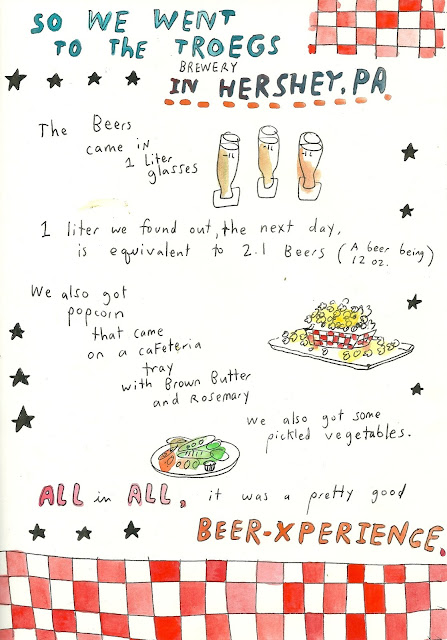 SO WE WENT
TO THE TROEGS
BREWERY
IN HERSHEY, PA
The Beers
came in
1 Liter
glasses
-1L
-1L
-1L
1 liter we found out, the next day,
is equivalent to 2.1 Beers (A beer being
12 oz.)
We also got
popcorn
that came
on a cafeteria
tray
with Brown Butter
and Rosemary
We also got some
pickled vegetables.
ALL in ALL, it was a pretty good
BEER-XPERIENCE.